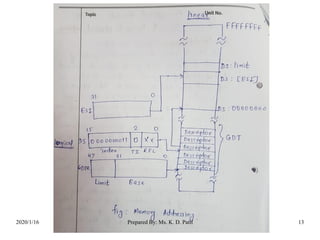 Topic
Unit No.
linear
FFFFFFFF
DS: limit
DS: [ESI]
31 0
ESI
DS: 00000000
15 2 0
Logical DS 0000000011 0 XX
Index TI RPL
Descriptor
Descriptor
Descriptor
Descriptor
Descriptor
Descriptor
GDT
47 31 0
GDTR
Limit Base
fig: Memory Addressing
2020/1/16
Prepared By: Ms. K. D. Patil
13